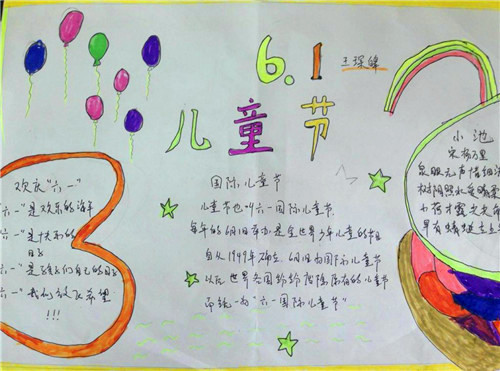 6.1
王琛峰
儿童节
欢庆"六一"
"六一"是欢乐的海洋
"六一"是快乐的
日子
"六一"是孩子们自己的日子
"六一"我们放飞希望
!!!
国际儿童节
儿童节也叫六一国际儿童节
每年的6月1日举行是全世界少年儿童的节日
自从1949年确立6月1日为国际儿童节
以后世界各国纷纷废除原有的儿童节
而统一为"六一国际儿童节"
小池
宋 杨万里
泉眼无声惜细流
树阴照水爱晴柔
小荷才露尖尖角
早有蜻蜓立上头